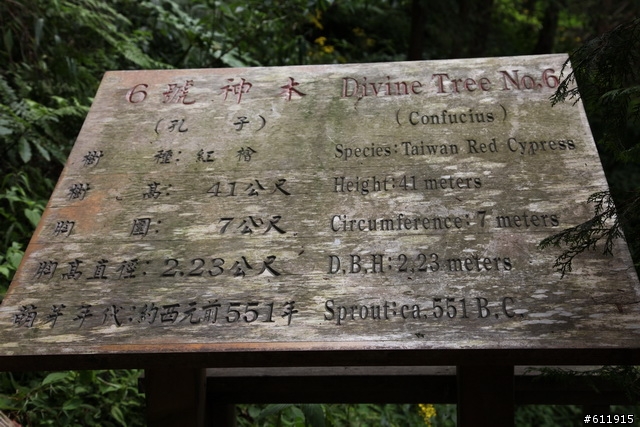 6號神木 Divine Tree No.6
(孔子) (Confucius)
樹種:紅檜 Species:Taiwan Red Cypress
樹高:41公尺 Height:41 meters
胸圍:7公尺 Circumference:7 meters
胸高直徑:2.23公尺 D.B.H:2.23 meters
萌芽年代:約西元前551年 Sprout:ca.551B.C.
#611915